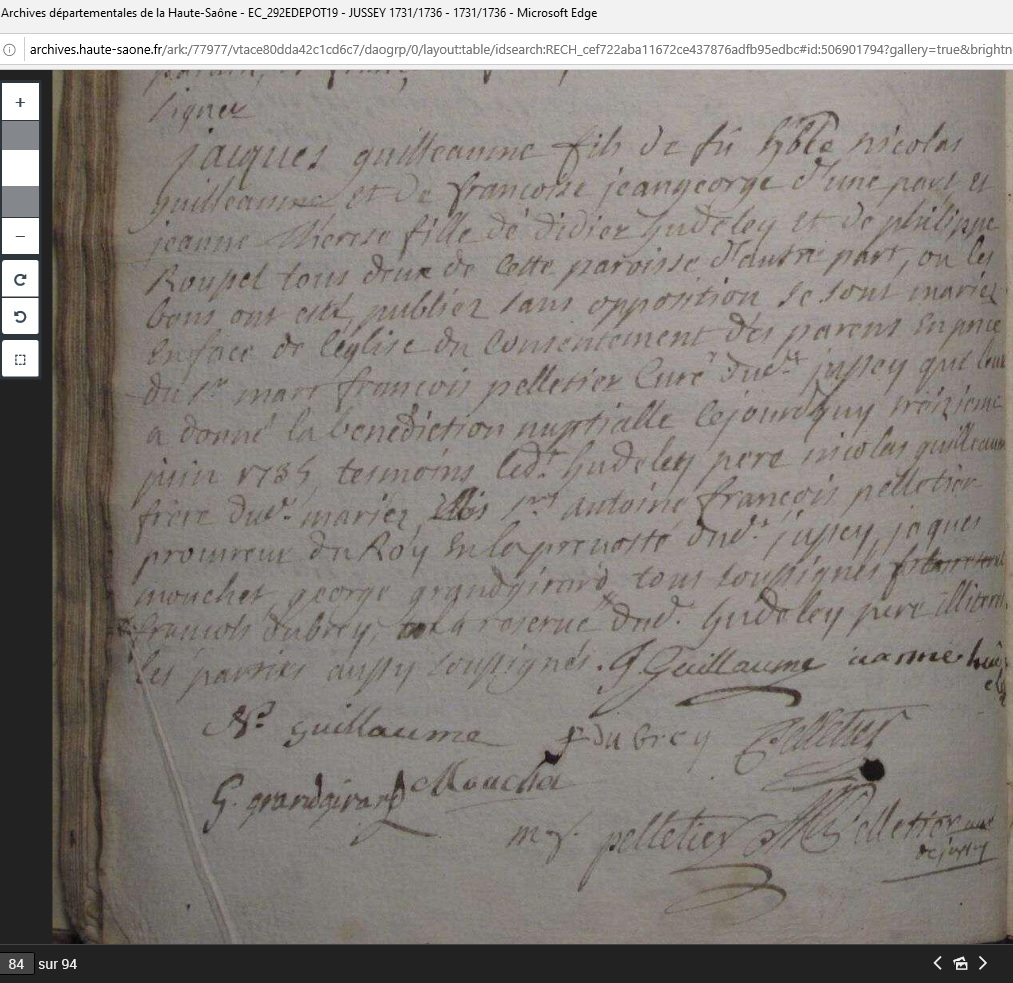 Archives départementales de la Haute-Saône - EC_292EDEPOT19 - JUSSEY 1731/1736 - 1731/1736 - Microsoft Edge
archives.haute-saone.fr/ark:/77977/vtace80dda42c1cd6c7/daogrp/0/layout:table/idsearch:RECH_cef722aba11672ce437876adfb95edbc#id:506901794?gallery=true&brightn
signez
jacques guilleaume fils de fû hble nicolas
guilleaume et de francoise jeangeorge d'une part et
jeanne therese fille de didier hudeley et de philippe
Roupel tous deux de cette paroisse d'autre part, ou les
bans ont esté publiez sans opposition se sont mariez
En face de l'eglise du Consentement des parens En pnce
du Sr marc françois pelletier Curé dud. jussey qui leur
a donné la benediction nuptialle cejourdhuy troizieme
juin 1735, tesmoins led. hudeley pere nicolas guilleaume
frere dud. mariez, Sr antoine françois pelletier
procureur du Roy En la prevosté dud. jussey, jacques
mouchet, george grandgirard tous soussignés
francois dubrey, a la reserve dud. hudeley pere illiteré
les parties aussy soussignés. J. Guillaume
Ns guillaume f dubrey Pelletier
G. grandgirard Mouchet
m f. pelletier Pelletier curé
de jussey
84 sur 94